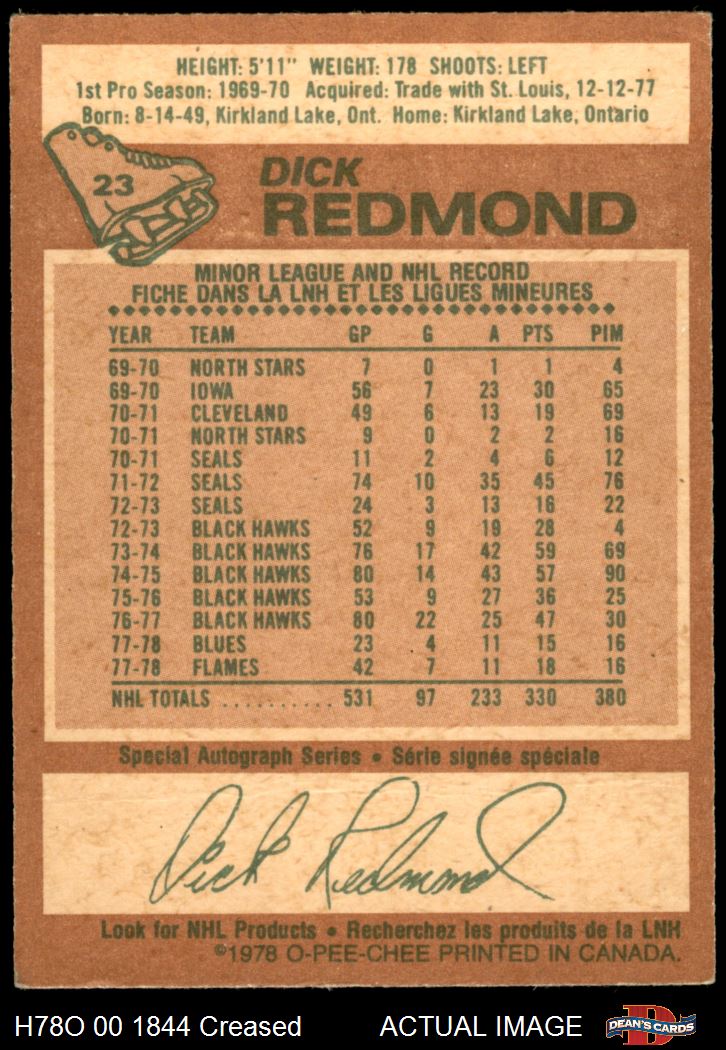 HEIGHT: 5'11" WEIGHT: 178 SHOOTS: LEFT
1st Pro Season: 1969-70 Acquired: Trade with St. Louis, 12-12-77
Born: 8-14-49, Kirkland Lake, Ont. Home: Kirkland Lake, Ontario
23
DICK
REDMOND
MINOR LEAGUE AND NHL RECORD
FICHE DANS LA LNH ET LES LIGUES MINEURES
YEAR TEAM GP G A PTS PIM
69-70 NORTH STARS 7 0 1 1 4
69-70 IOWA 56 7 23 30 65
70-71 CLEVELAND 49 6 13 19 69
70-71 NORTH STARS 9 0 2 2 16
70-71 SEALS 11 2 4 6 12
71-72 SEALS 74 10 35 45 76
72-73 SEALS 24 3 13 16 22
72-73 BLACK HAWKS 52 9 19 28 4
73-74 BLACK HAWKS 76 17 42 59 69
74-75 BLACK HAWKS 80 14 43 57 90
75-76 BLACK HAWKS 53 9 27 36 25
76-77 BLACK HAWKS 80 22 25 47 30
77-78 BLUES 23 4 11 15 16
77-78 FLAMES 42 7 11 18 16
NHL TOTALS .......... 531 97 233 330 380
Special Autograph Series • Série signée spéciale
Dick Redmond
Look for NHL Products • Recherchez les produits de la LNH
©1978 O-PEE-CHEE PRINTED IN CANADA.
H78O 00 1844 Creased ACTUAL IMAGE
D
DEAN'S CARDS